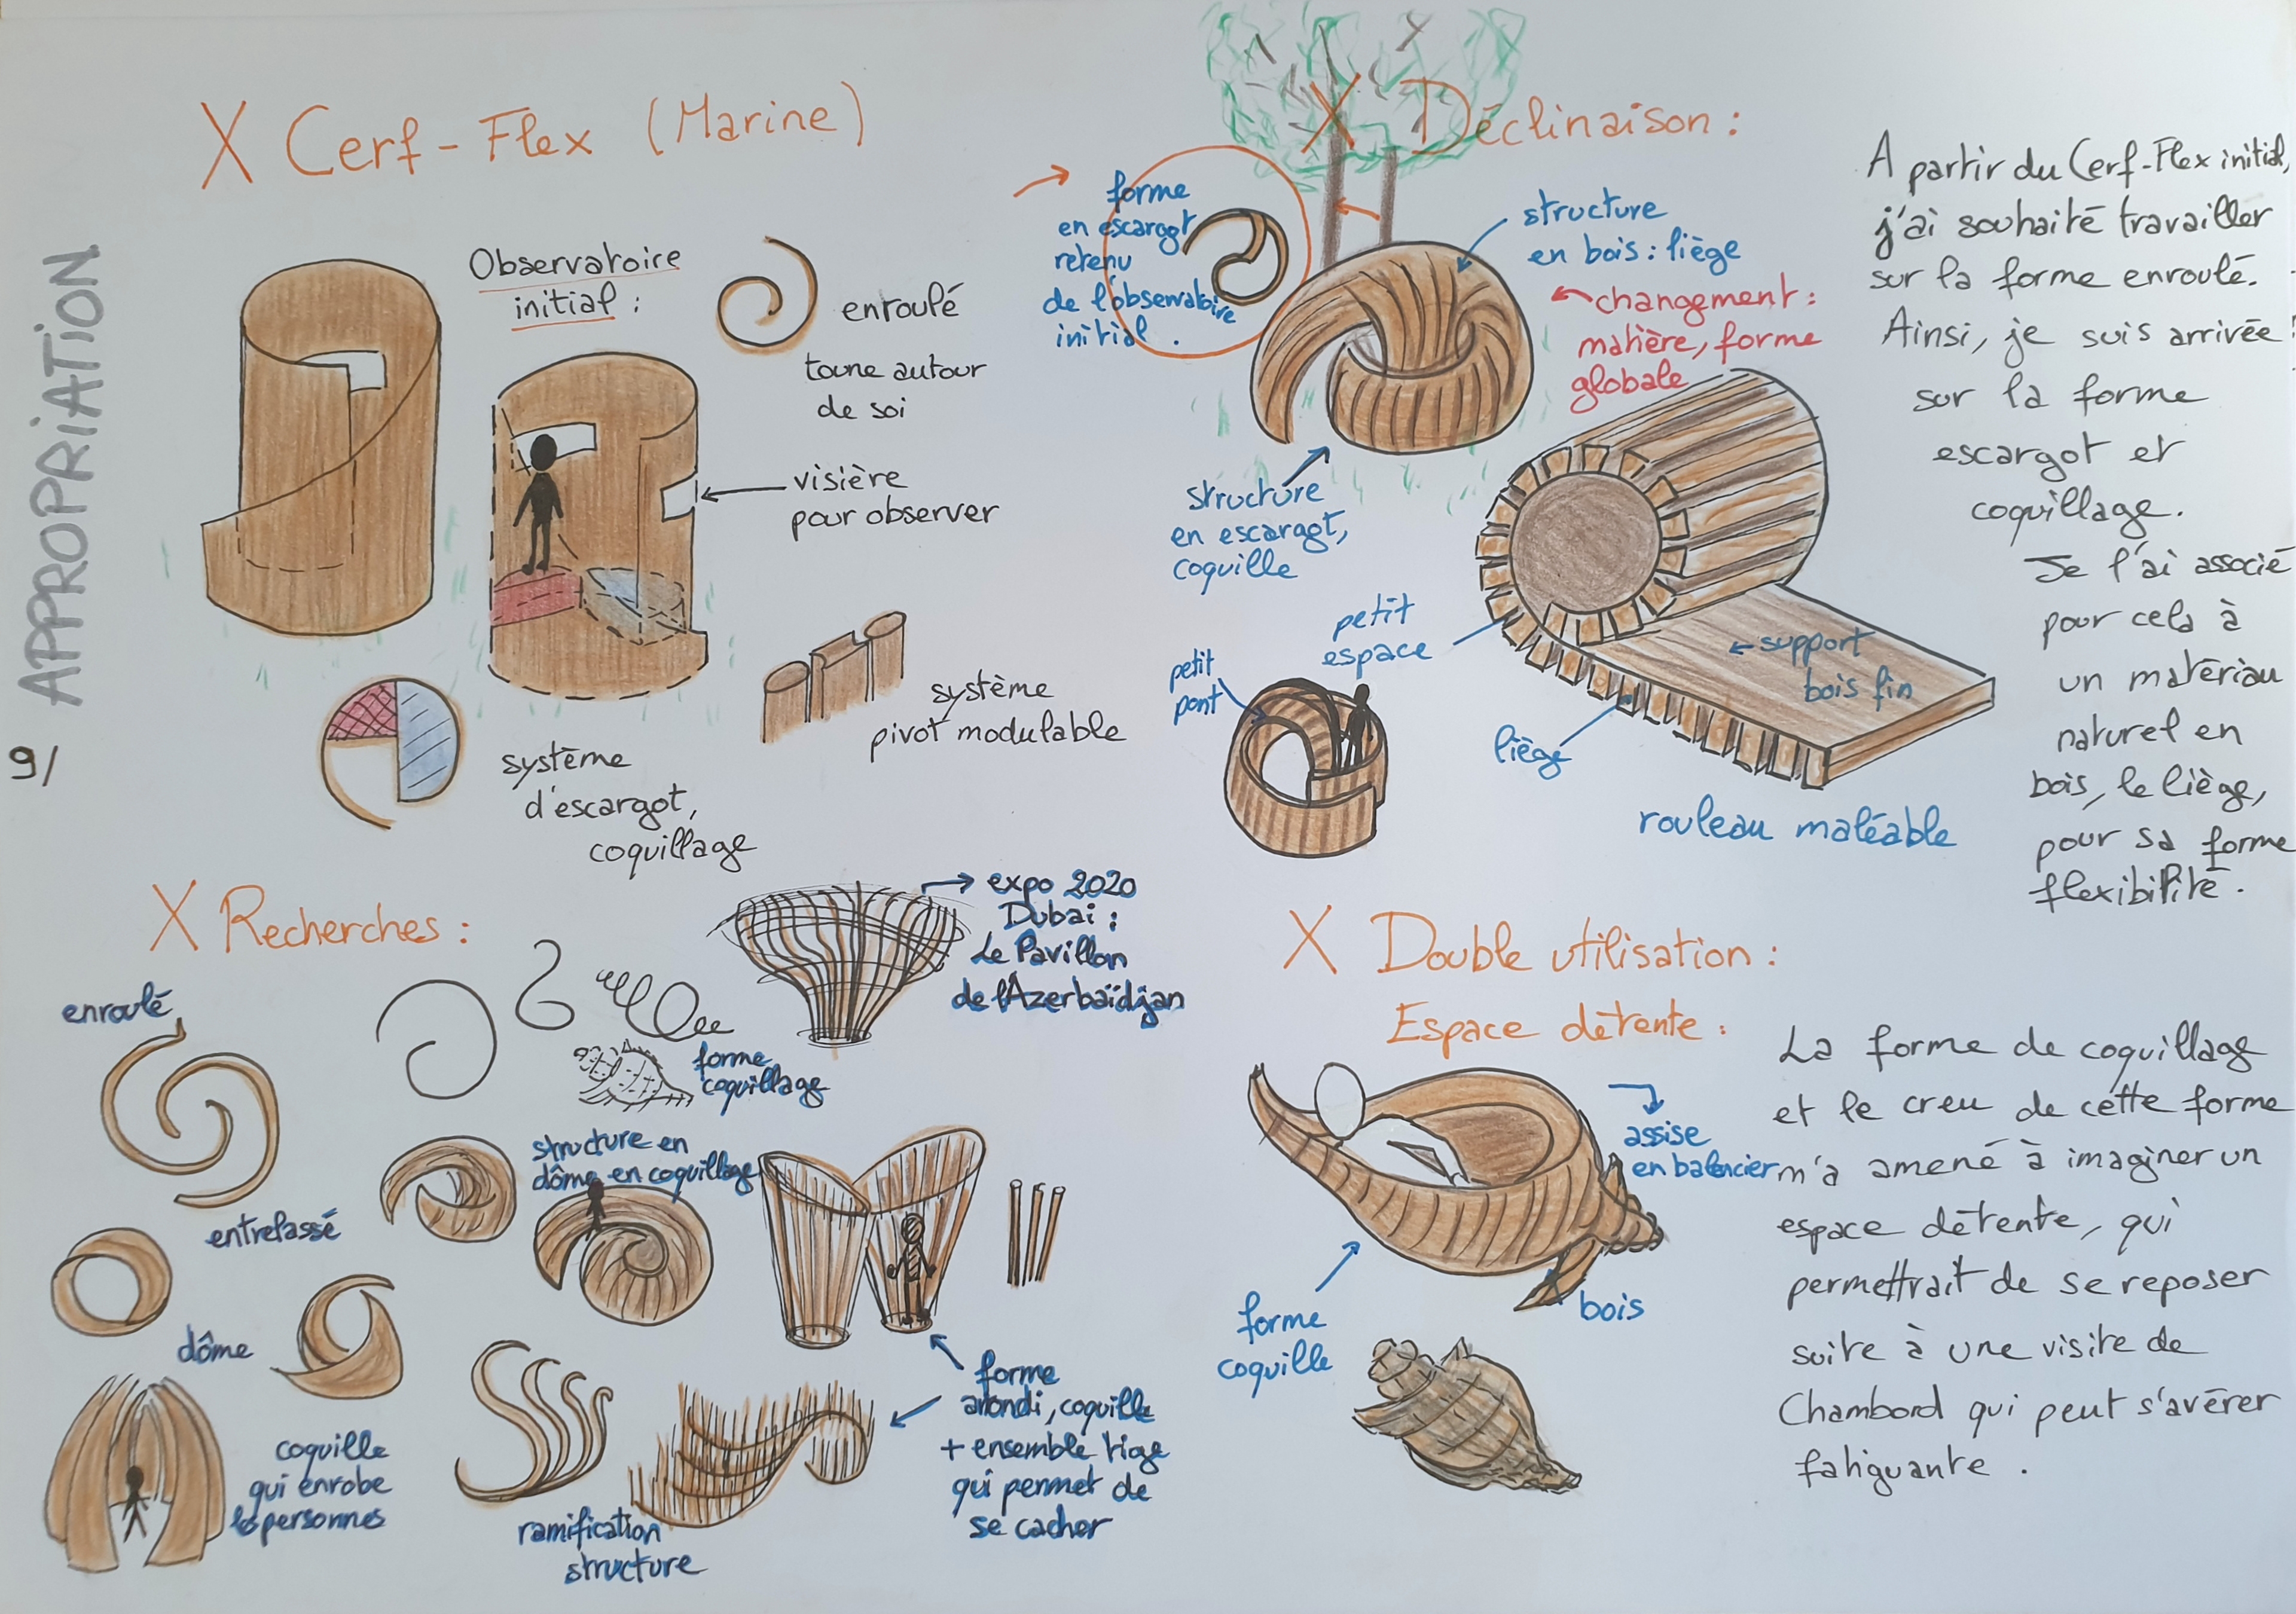 APPROPRIATION
9/
X Cerf-Flex (Marine)
Observatoire
initial :
enroulé
tourne autour
de soi
visière
pour observer
système
pivot modulable
système
d'escargot,
coquillage
X Recherches :
enroulé
entrelassé
dôme
coquille
qui enrobe
les personnes
forme
coquillage
expo 2020
Dubai :
Le Pavillon
de l'Azerbaïdjan
structure en
dôme en coquillage
ramification
structure
forme
arondi, coquille
+ ensemble tige
qui permet de
se cacher
X Déclinaison :
forme
en escargot
retenu
de l'observatoire
initial.
structure
en bois : liège
changement :
matière, forme
globale
structure
en escargot,
coquille
petit
espace
petit
pont
support
bois fin
liège
rouleau maléable
A partir du Cerf-Flex initial,
j'ai souhaité travailler
sur la forme enroulé.
Ainsi, je suis arrivée
sur la forme
escargot et
coquillage.
Je l'ai associé
pour cela à
un matériau
naturel en
bois, le liège,
pour sa forme
flexibilité.
X Double utilisation :
Espace détente :
assise
en balancier
bois
forme
coquille
La forme de coquillage
et le creu de cette forme
m'a amené à imaginer un
espace détente, qui
permettrait de se reposer
suite à une visite de
Chambord qui peut s'avérer
fatiguante.